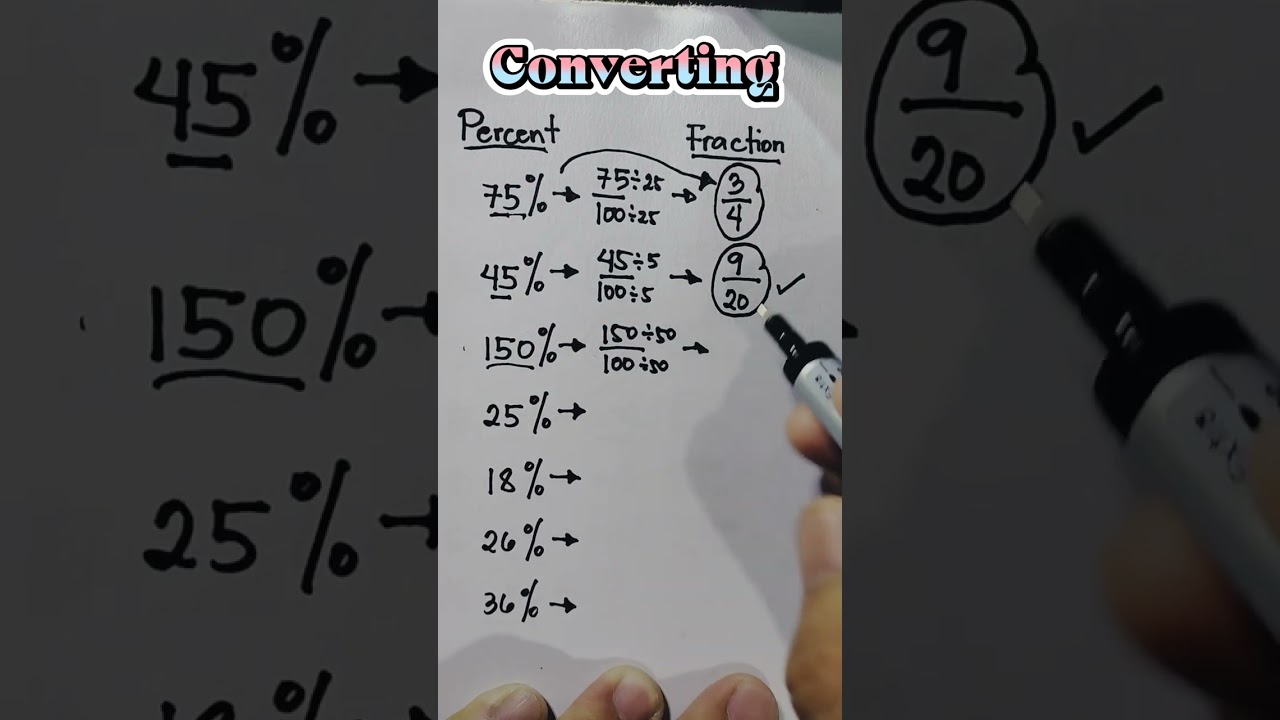 Converting
Percent Fraction
75% → 75÷25/100÷25 → 3/4
45% → 45÷5/100÷5 → 9/20 ✓
150% → 150÷50/100÷50 →
25% →
18% →
26% →
36% →
45% → 9/20 ✓
150% →
25% →